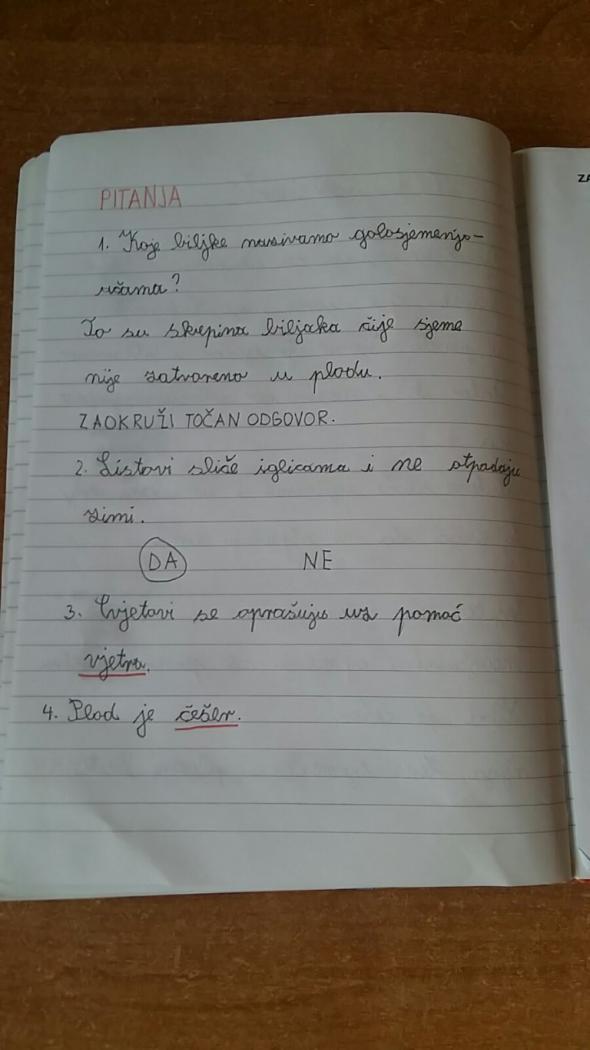 PITANJA
1. Koje biljke nasivamo golosjemenjo-
ačama?
To su skupina biljaka čije sjeme
nije zatvoreno u plodu.
ZAOKRUŽI TOČAN ODGOVOR.
2. Listovi sliče iglicama i ne otpadaju
zimi.
DA NE
3. Cvjetovi se oprašuju uz pomoć
vjetra.
4. Plod je češer.
ZA